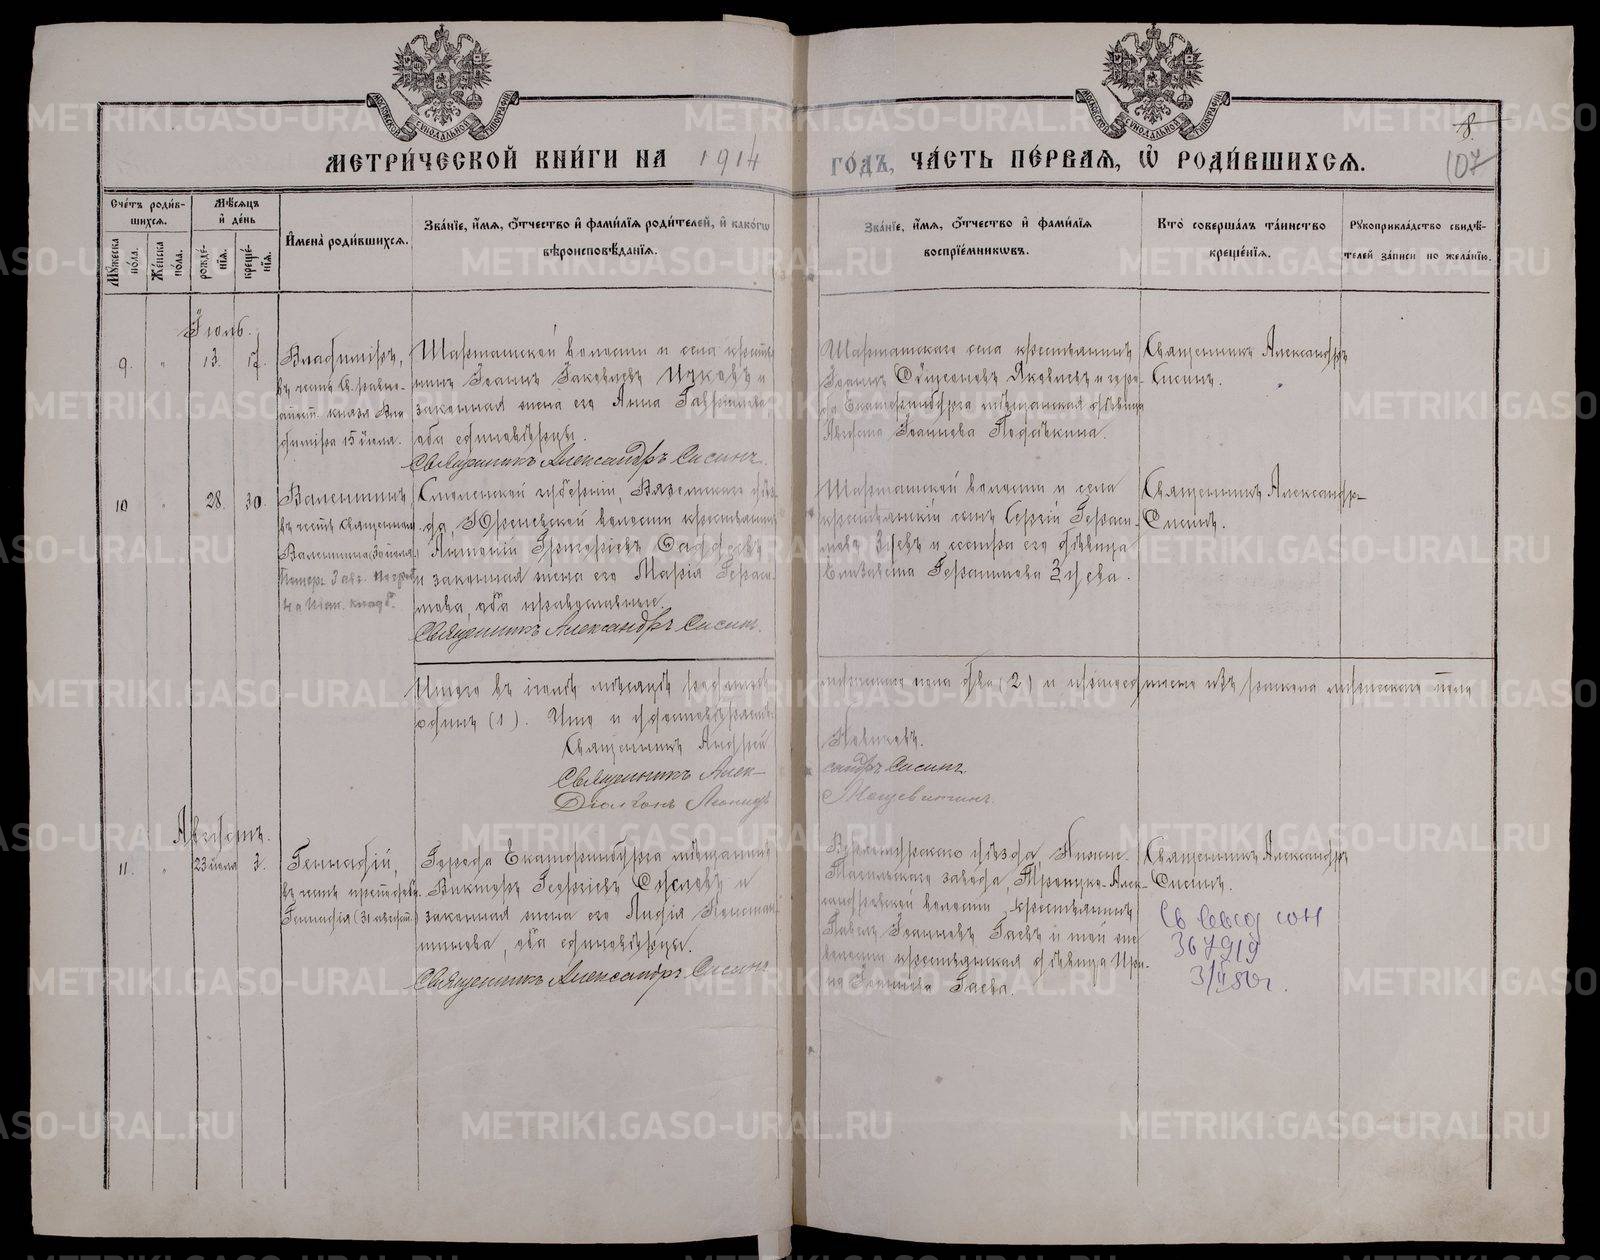 МЕТРИ́ЧЕСКОЙ КНИ́ГИ НА 1914
ГО́ДЪ, ЧА́СТЬ ПЕ́РВАЯ, Ѽ РОДИ́ВШИХСЯ.
8
107
Сче́тъ роди́в-
шихся.
Мꙋжеска по́ла.
Же́нска по́ла.
Мѣ́сяцъ
и҆ де́нь
рожде́-
нїя.
креще́-
нїя.
И҆мена̀ роди́вшихся.
Зва́нїе, и҆́мя, ѻ҆́тчество и҆ фами́лїя роди́телей, и҆ како́гѡ
вѣроисповѣ́данїя.
Зва́нїе, и҆́мя, ѻ҆́тчество и҆ фами́лїя
воспрїе́мникѡвъ.
Кто̀ соверша́лъ та́инство
креще́нїя.
Рꙋкоприкла́дство свидѣ́-
телей за́писи по жела́нїю.
Іюль.
9. " 13. 17.
Владиміръ,
въ честь Св. равно-
апост. князя Вла
диміра 15 іюля.
Шарташской волости и села крестья
нинъ Іоаннъ Іаковлевъ и
законная жена его Анна Гавриилова
оба единовѣрцы.
Священникъ Александръ Сисинъ.
Шарташскаго села крестьянинъ
Іоаннъ Яковлевъ и горо-
да Екатеринбурга мѣщанская дѣвица
Іоаннова
Священникъ Александръ
Сисинъ.
10 " 28. 30.
Валентинъ
въ честь священном.
Валентина 30 іюля
Смоленской губерніи, Вяземскаго уѣз-
да, волости крестьянинъ
Антоній Григоріевъ
и законная жена его Марія Гераси-
мова, оба православные.
Священникъ Александръ Сисинъ.
Шарташской волости и села
крестьянскій сынъ Сергій Гераси-
мовъ Зуевъ и сестра его дѣвица
Елизавета Герасимова Зуева.
Священникъ Александръ
Сисинъ.
Итого въ іюлѣ мѣсяцѣ родилось
мужескаго пола два (2) и присоединено изъ раскола мужескаго пола
одинъ (1). Что и удостовѣряемъ:
Священникъ Андрей
Новиковъ.
Священникъ Алек-
сандръ Сисинъ.
Діаконъ Леонидъ
Августъ.
11. " 23 іюля 3.
Геннадій,
въ честь преподоб.
Геннадія (31 август.)
Города Екатеринбурга мѣщанинъ
Викторъ Георгіевъ и
законная жена его Лидія Констан
тинова, оба единовѣрцы.
Священникъ Александръ Сисинъ
Верхотурскаго уѣзда, Нижне-
Тагильскаго завода, Троицко-Алек-
сандровской волости крестьянинъ
Павелъ Іоанновъ Гаевъ и той же
волости крестьянская дѣвица Ири-
на Іоаннова Гаева.
Священникъ Александръ
Сисинъ.
METRIKI.GASO-URAL.RU